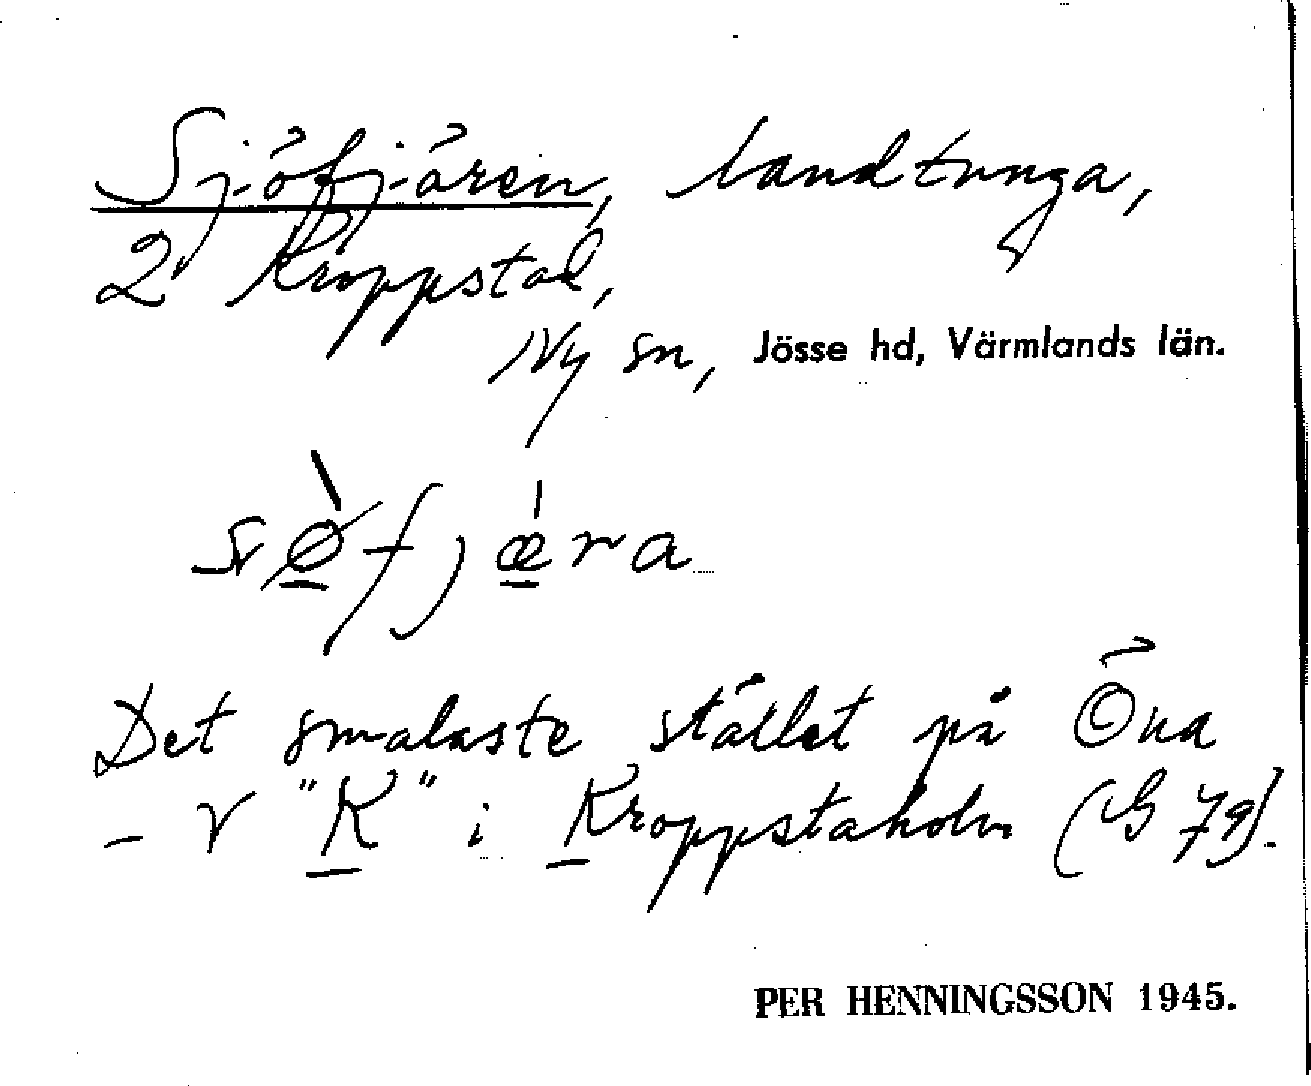 Sjöfjären, landtunga,
2 Kroppstad,
Ny sn, Jösse hd, Värmlands län.
sø̀fjæ̍ra
Det smalaste stället på Öna
– V "K" i Kroppstaholm (G 79).
PER HENNINGSSON 1945.